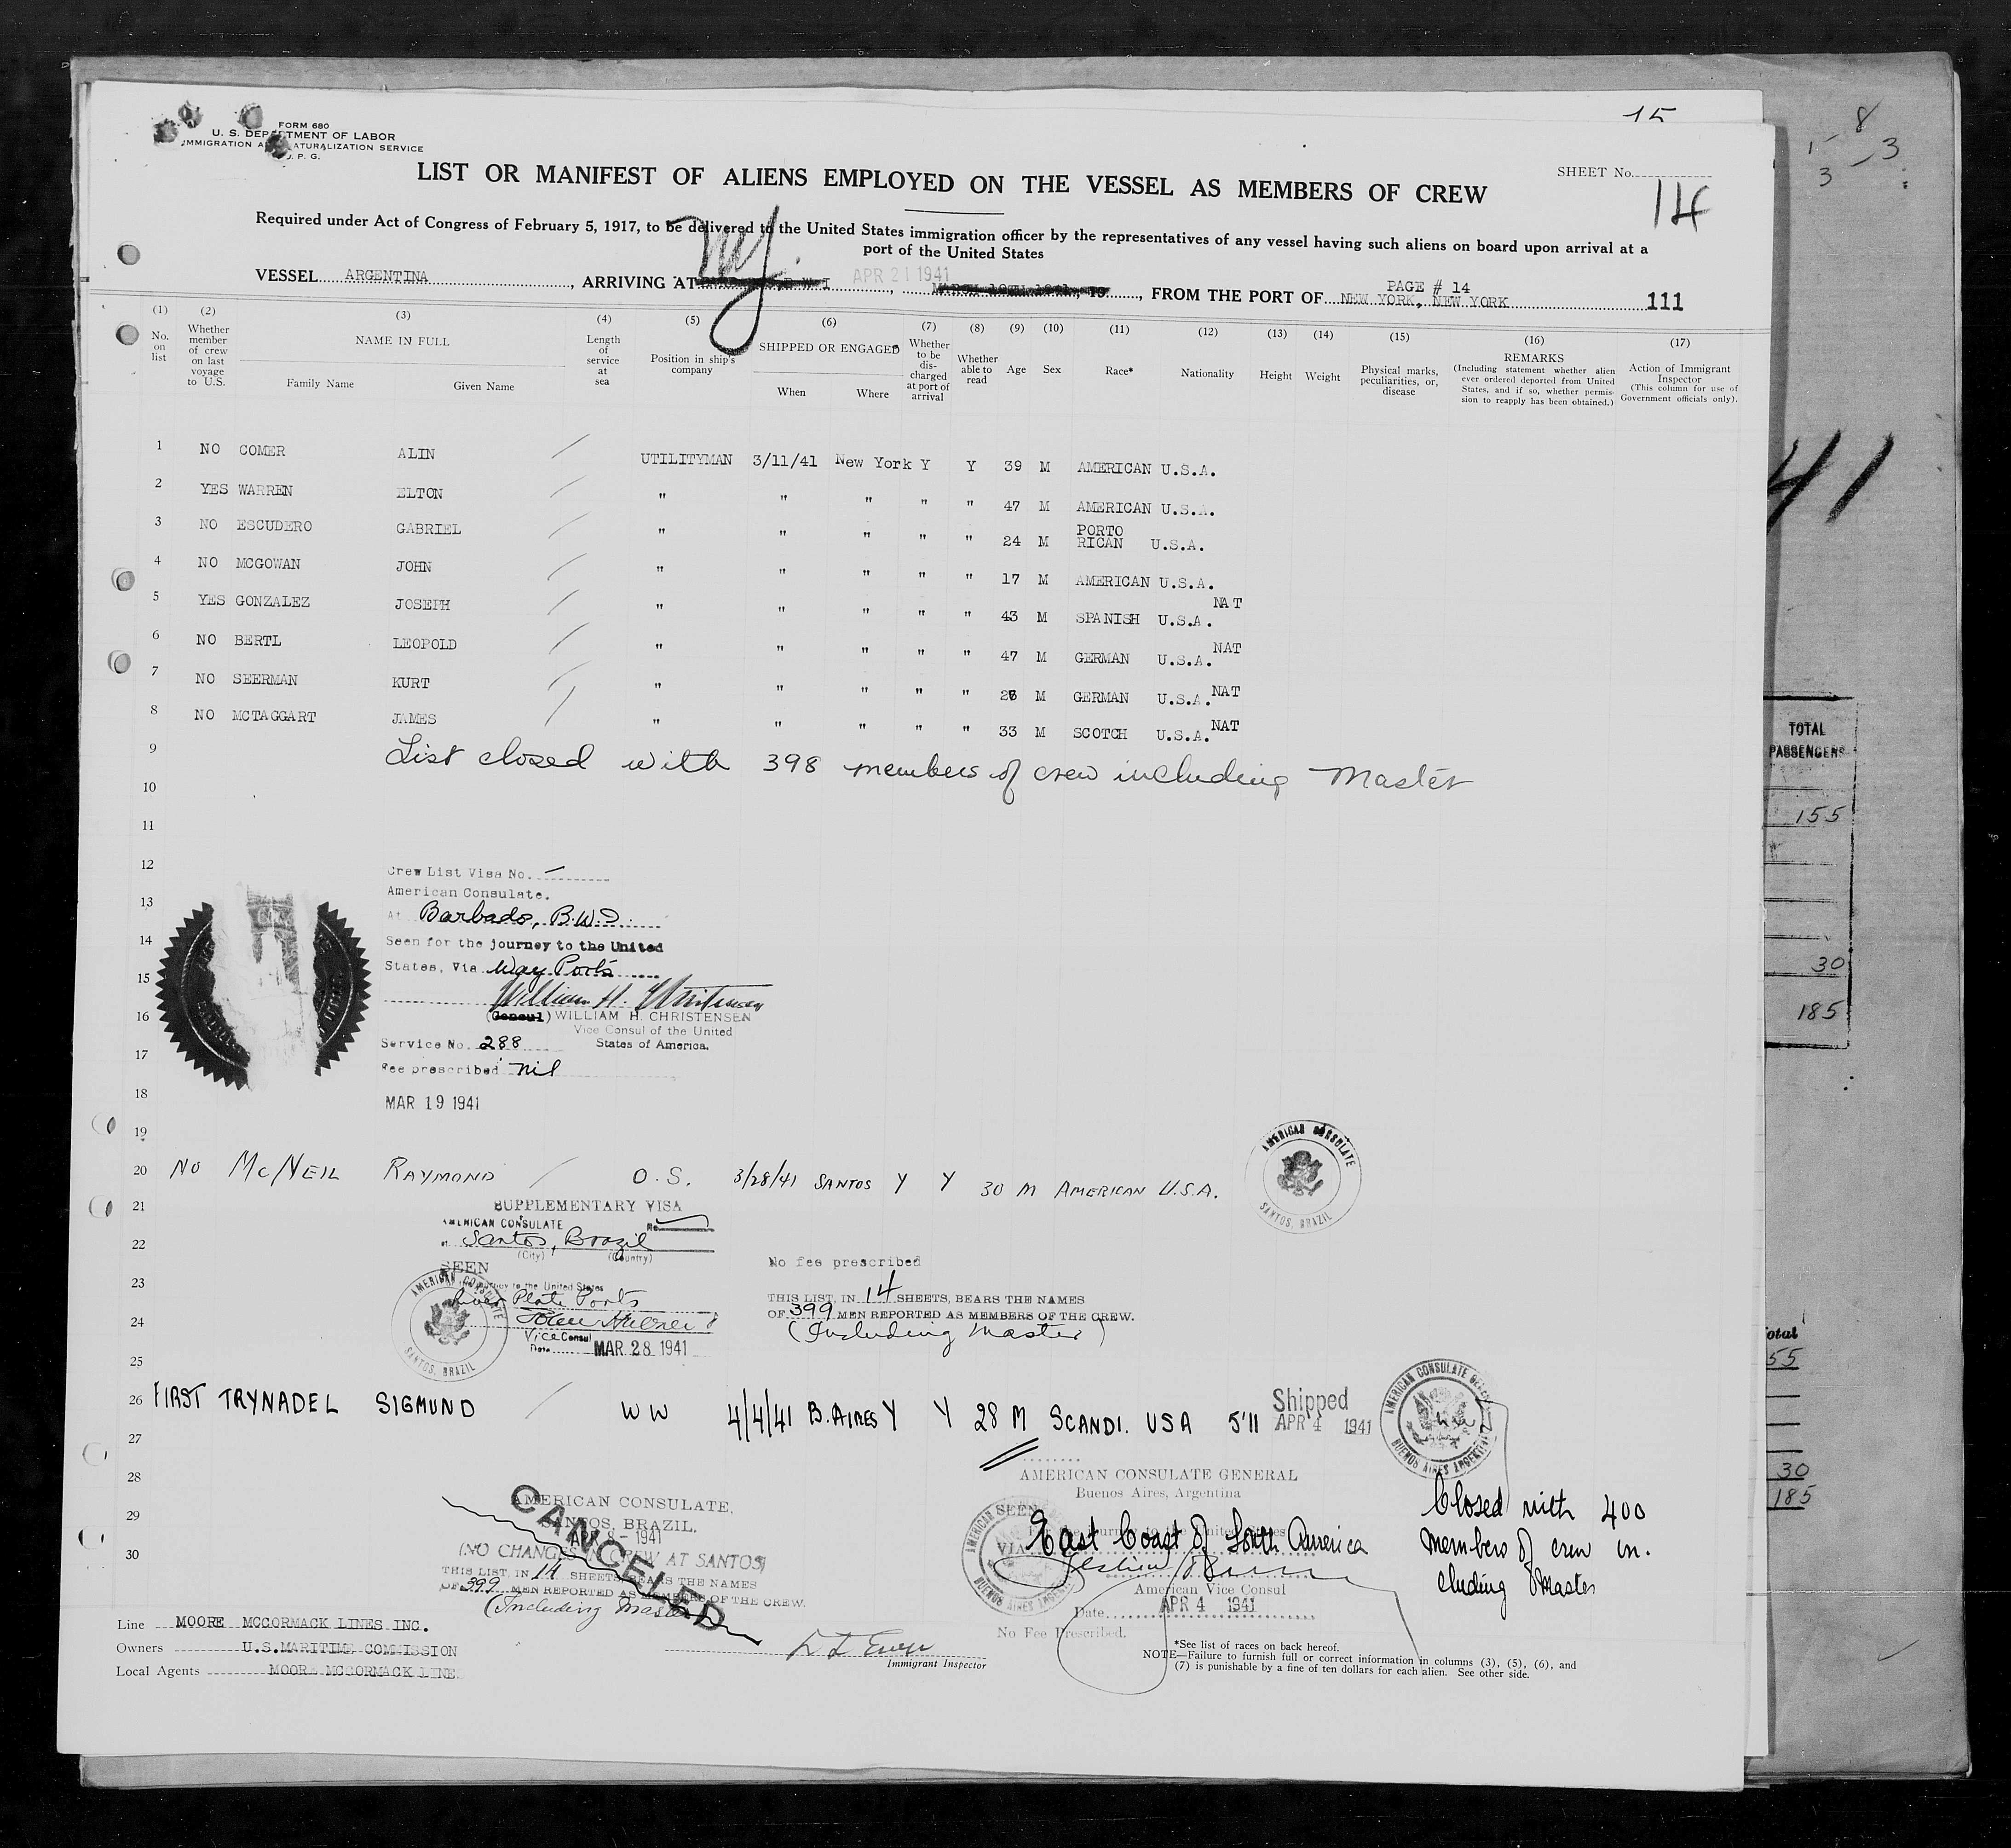 15
FORM 680
U. S. DEPARTMENT OF LABOR
IMMIGRATION AND NATURALIZATION SERVICE
P. G.
SHEET No.
14
LIST OR MANIFEST OF ALIENS EMPLOYED ON THE VESSEL AS MEMBERS OF CREW
Required under Act of Congress of February 5, 1917, to be delivered to the United States immigration officer by the representatives of any vessel having such aliens on board upon arrival at a
port of the United States
VESSEL ARGENTINA, ARRIVING AT NY. APR 21 1941, FROM THE PORT OF NEW YORK, NEW YORK PAGE # 14 111
(1) (2) (3) (4) (5) (6) (7) (8) (9) (10) (11) (12) (13) (14) (15) (16) (17)
No. on list
Whether member of crew on last voyage to U.S.
NAME IN FULL
Family Name Given Name
Length of service at sea
Position in ship's company
SHIPPED OR ENGAGED
When Where
Whether to be discharged at port of arrival
Whether able to read
Age Sex Race* Nationality Height Weight
Physical marks, peculiarities, or, disease
REMARKS
(Including statement whether alien ever ordered deported from United States, and if so, whether permission to reapply has been obtained.)
Action of Immigrant Inspector
(This column for use of Government officials only).
1 NO COMER ALIN / UTILITYMAN 3/11/41 New York Y Y 39 M AMERICAN U.S.A.
2 YES WARREN ELTON / " " " " " 47 M AMERICAN U.S.A.
3 NO ESCUDERO GABRIEL / " " " " " 24 M PORTO RICAN U.S.A.
4 NO MCGOWAN JOHN / " " " " " 17 M AMERICAN U.S.A.
5 YES GONZALEZ JOSEPH / " " " " " 43 M SPANISH U.S.A. NAT
6 NO BERTL LEOPOLD / " " " " " 47 M GERMAN U.S.A. NAT
7 NO SEERMAN KURT / " " " " " M GERMAN U.S.A. NAT
8 NO MCTAGGART JAMES / " " " " " 33 M SCOTCH U.S.A. NAT
9 List closed with 398 members of crew including Master
10
11
12
13
14
15
16
17
18
19
Crew List Visa No. -
American Consulate.
At Barbados, B.W.I.
Seen for the journey to the United
States, Via Way Ports
William H. Christensen
(Consul) WILLIAM H. CHRISTENSEN
Vice Consul of the United
States of America.
Service No. 288
Fee prescribed nil
MAR 19 1941
20 NO McNEIL RAYMOND / O.S. 3/28/41 SANTOS Y Y 30 M AMERICAN U.S.A.
AMERICAN CONSULATE
SANTOS, BRAZIL
21
22
23
24
25
SUPPLEMENTARY VISA
AMERICAN CONSULATE No.
at Santos, Brazil
(City) (Country)
SEEN
journey to the United States
River Plate Ports
Vice Consul
Date MAR 28 1941
AMERICAN CONSULATE
SANTOS, BRAZIL
No fee prescribed
THIS LIST, IN 14 SHEETS, BEARS THE NAMES
OF 399 MEN REPORTED AS MEMBERS OF THE CREW.
(Including Master)
26 FIRST TRYNADEL SIGMUND / WW 4/4/41 B. AIRES Y Y 28 M SCANDI. USA 5'11 Shipped APR 4 1941
AMERICAN CONSULATE GENERAL
BUENOS AIRES ARGENTINA
27
28
29
30
AMERICAN CONSULATE,
SANTOS, BRAZIL.
APR 8 - 1941
(NO CHANGES IN CREW AT SANTOS)
THIS LIST, IN 14 SHEETS, BEARS THE NAMES
OF 399 MEN REPORTED AS MEMBERS OF THE CREW.
(Including Master)
CANCELED
AMERICAN CONSULATE GENERAL
Buenos Aires, Argentina
SEEN
For the journey to the United States
VIA East Coast of South America
American Vice Consul
Date APR 4 1941
No Fee Prescribed.
Closed with 400
members of crew in-
cluding Master
Line MOORE MCCORMACK LINES INC.
Owners U.S.MARITIME COMMISSION
Local Agents MOORE MCCORMACK LINE
Immigrant Inspector
*See list of races on back hereof.
NOTE—Failure to furnish full or correct information in columns (3), (5), (6), and
(7) is punishable by a fine of ten dollars for each alien. See other side.
41
TOTAL
PASSENGERS
155
30
185
otal
55
30
185